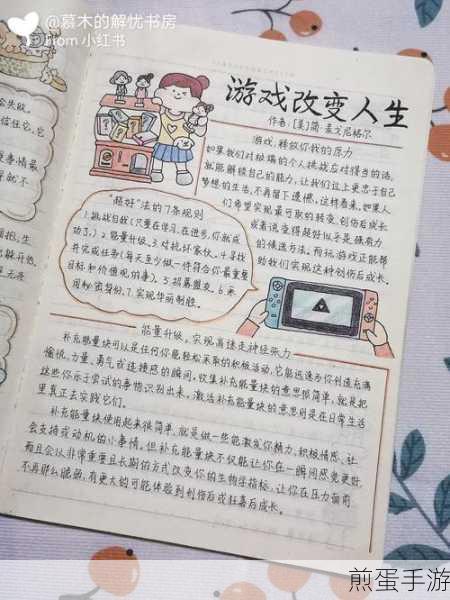 @慕木的解忧书房
From 小红书
游戏改变人生
作者:[美]简·麦戈尼格尔
游戏,释放你我的原力
如果我们对极端的个人挑战应对得当的话,
就能解锁自己的能力,让我们过上更忠于自己
梦想的生活,不再留下遗憾,这样看来,如果人
们希望实现最可取的转变,创伤后成长
或者说变得超好似乎是强有力
的候选方法。而玩游戏正能帮
助我们实现这种创伤后成长。
"超好"法的7条规则
1.挑战自我(只重在学习,在进步,你就成
功了。)2.能量升级。3.对抗坏家伙。4.寻找
并完成任务(每天至少做一件符合你最重要
目标和价值观的事)。5.招募盟友。6.采
用秘密身份。7.实现华丽制胜。
能量升级,实现高迷走神经张力
补充能量块可以是任何你能轻松采取的积极活动,它能迅速为你创造充满
愉悦、力量、勇气或连接感的瞬间。收集补充能量块的意思很简单,就是把
这些你乐于尝试的事物识别出来。激活补充能量块的意思则是在日常生活
里真正去实践它们。
补充能量块使用起来很简单,就是做一些能激发你精力、积极情感、社
会支持或动机的小事情。但补充能量块不仅能让你在一瞬间感觉更好,
而且会以非常重要且长期的方式改变你的生物学指标,让你在压力面前
不再那么脆弱,有更大的可能体验到创伤后或狂喜后成长。
会失败。
信任它,它
煎蛋手游